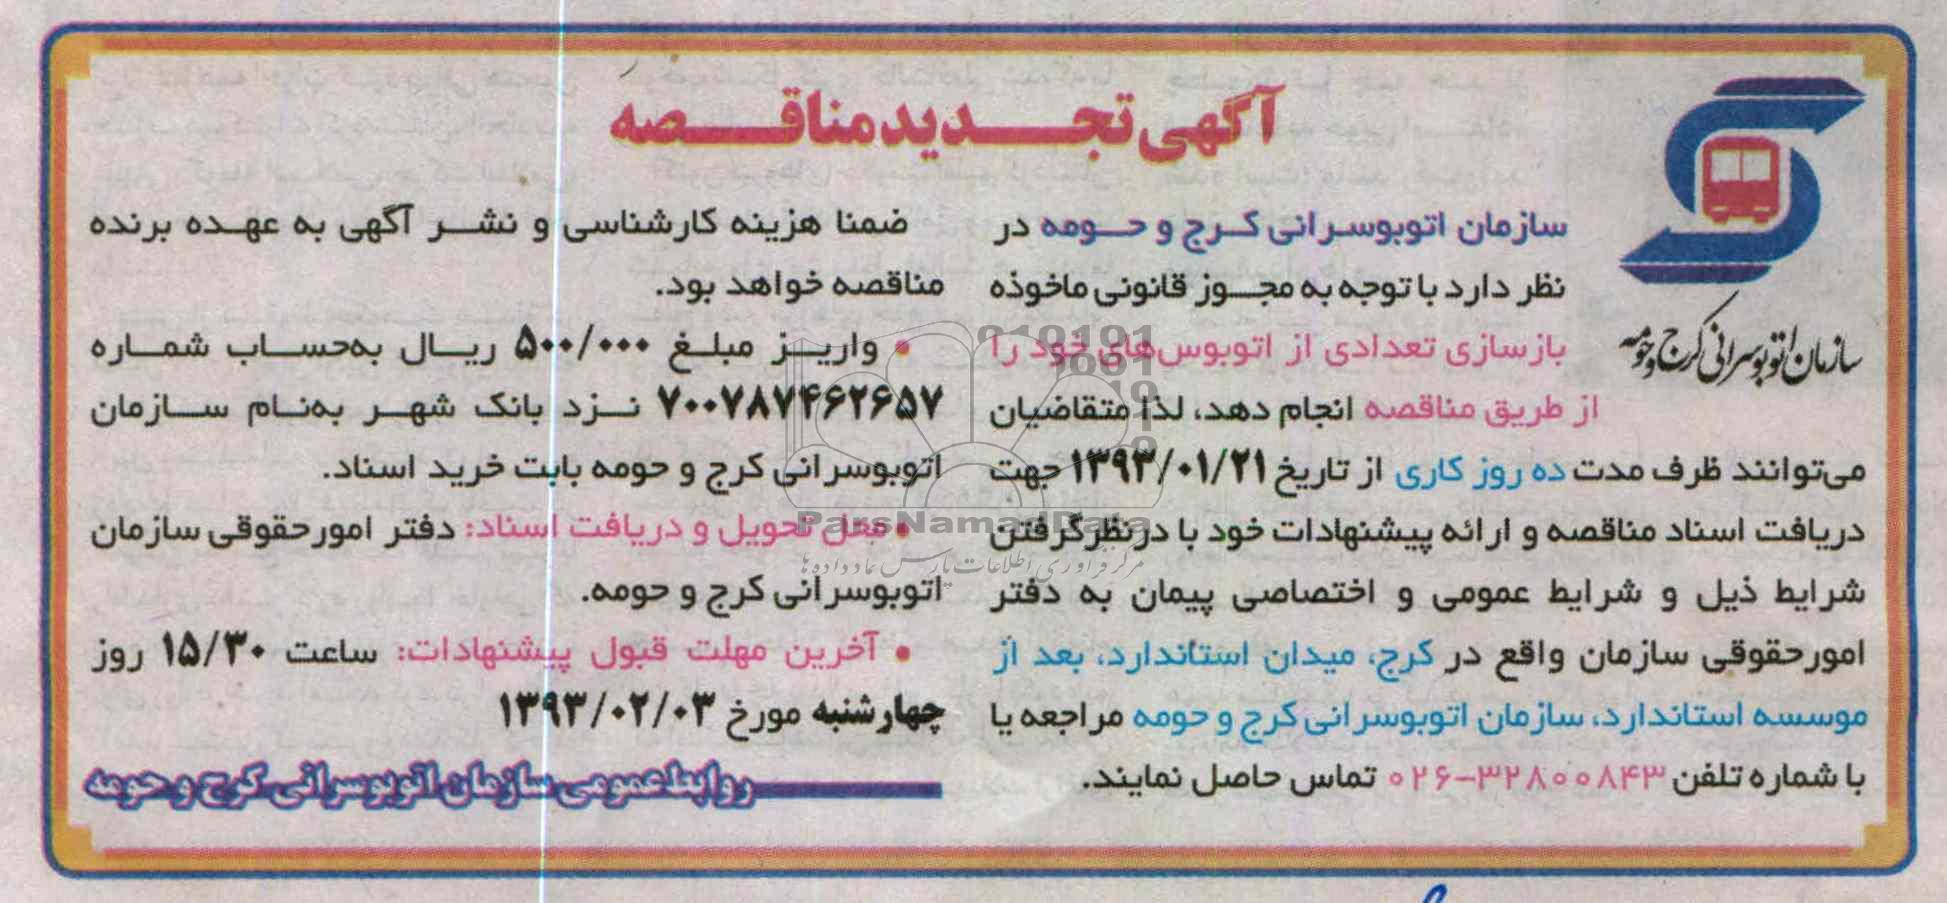 آگهی تجدید مناقصه
سازمان اتوبوسرانی کرج و حومه
سازمان اتوبوسرانی کرج و حومه در
نظر دارد با توجه به مجوز قانونی ماخوذه
بازسازی تعدادی از اتوبوس‌های خود را
از طریق مناقصه انجام دهد، لذا متقاضیان
می‌توانند ظرف مدت ده روز کاری از تاریخ ۱۳۹۳/۰۱/۲۱ جهت
دریافت اسناد مناقصه و ارائه پیشنهادات خود با درنظرگرفتن
شرایط ذیل و شرایط عمومی و اختصاصی پیمان به دفتر
امورحقوقی سازمان واقع در کرج، میدان استاندارد، بعد از
موسسه استاندارد، سازمان اتوبوسرانی کرج و حومه مراجعه یا
با شماره تلفن ۳۲۸۰۰۸۴۳-۰۲۶ تماس حاصل نمایند.
ضمنا هزینه کارشناسی و نشر آگهی به عهده برنده
مناقصه خواهد بود.
• واریز مبلغ ۵۰۰/۰۰۰ ریال به‌حساب شماره
۷۰۰۷۸۷۴۶۲۶۵۷ نزد بانک شهر به‌نام سازمان
اتوبوسرانی کرج و حومه بابت خرید اسناد.
• محل تحویل و دریافت اسناد: دفتر امورحقوقی سازمان
اتوبوسرانی کرج و حومه.
• آخرین مهلت قبول پیشنهادات: ساعت ۱۵/۳۰ روز
چهارشنبه مورخ ۱۳۹۳/۰۲/۰۳
روابط عمومی سازمان اتوبوسرانی کرج و حومه
ParsNamadData
مرکز فرآوری اطلاعات پارس نماد داده ها